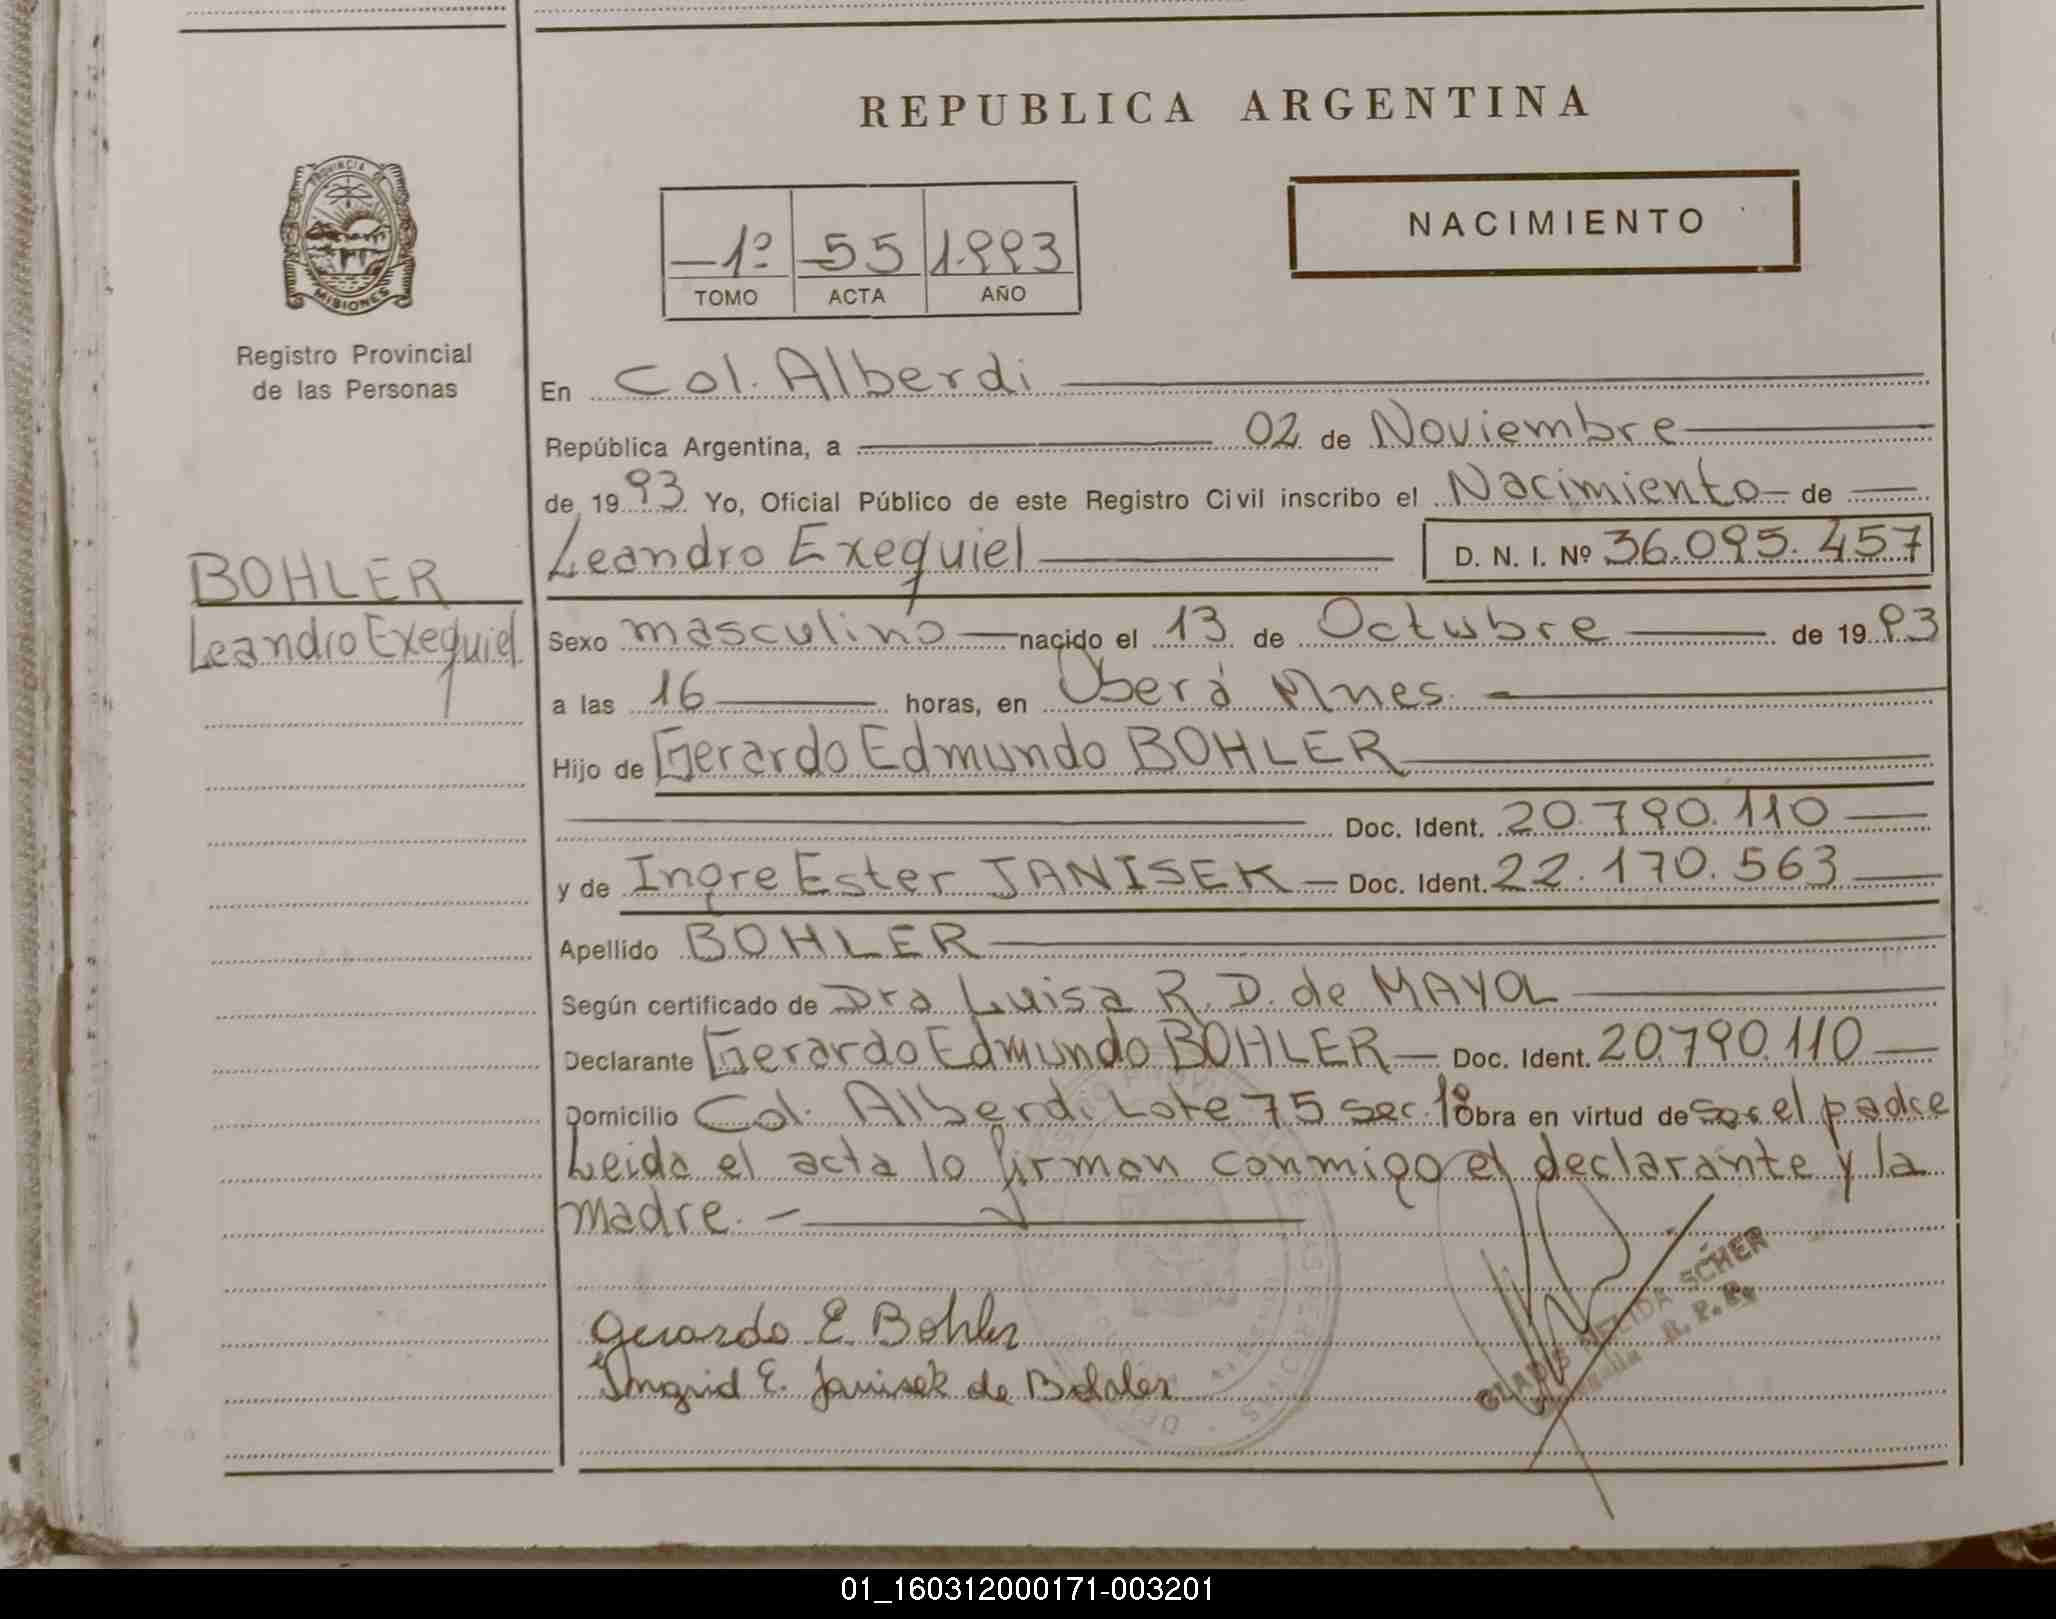 REPUBLICA ARGENTINA
PROVINCIA DE
MISIONES
Registro Provincial
de las Personas
1º 55 1.993
TOMO ACTA AÑO
NACIMIENTO
En Col. Alberdi
República Argentina, a 02 de Noviembre
de 1993 Yo, Oficial Público de este Registro Civil inscribo el Nacimiento de
Leandro Exequiel D. N. I. Nº 36.095.457
BOHLER
Leandro Exequiel
Sexo masculino nacido el 13 de Octubre de 1993
a las 16 horas, en Oberá Mnes.
Hijo de Gerardo Edmundo BOHLER
Doc. Ident. 20.790.110
y de Ingre Ester JANISEK Doc. Ident. 22.170.563
Apellido BOHLER
Según certificado de Dra Luisa R. D. de MAYOL
Declarante Gerardo Edmundo BOHLER Doc. Ident. 20.790.110
Domicilio Col. Alberdi Lote 75 sec. 1º Obra en virtud de ser el padre
Leida el acta lo firman conmigo el declarante y la
madre.
Gerardo E. Bohler
Ingrid E. Janisek de Bohler
GLADIS SCHER
R. P. P.
01_160312000171-003201